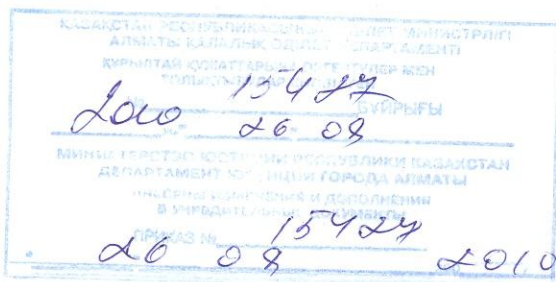 ҚАЗАҚСТАН РЕСПУБЛИКАСЫНЫҢ ӘДІЛЕТ МИНИСТРЛІГІ
АЛМАТЫ ҚАЛАЛЫҚ ӘДІЛЕТ ДЕПАРТАМЕНТІ
ҚҰРЫЛТАЙ ҚҰЖАТТАРЫНА ӨЗГЕРІСТЕР МЕН
2010 15427 БҰЙРЫҒЫ
26 08
МИНИСТЕРСТВО ЮСТИЦИИ РЕСПУБЛИКИ КАЗАХСТАН
ДЕПАРТАМЕНТ ЮСТИЦИИ ГОРОДА АЛМАТЫ
ВНЕСЕНЫ ИЗМЕНЕНИЯ И ДОПОЛНЕНИЯ
В УЧРЕДИТЕЛЬНЫЕ ДОКУМЕНТЫ
ПРИКАЗ № 15427
26 08 2010